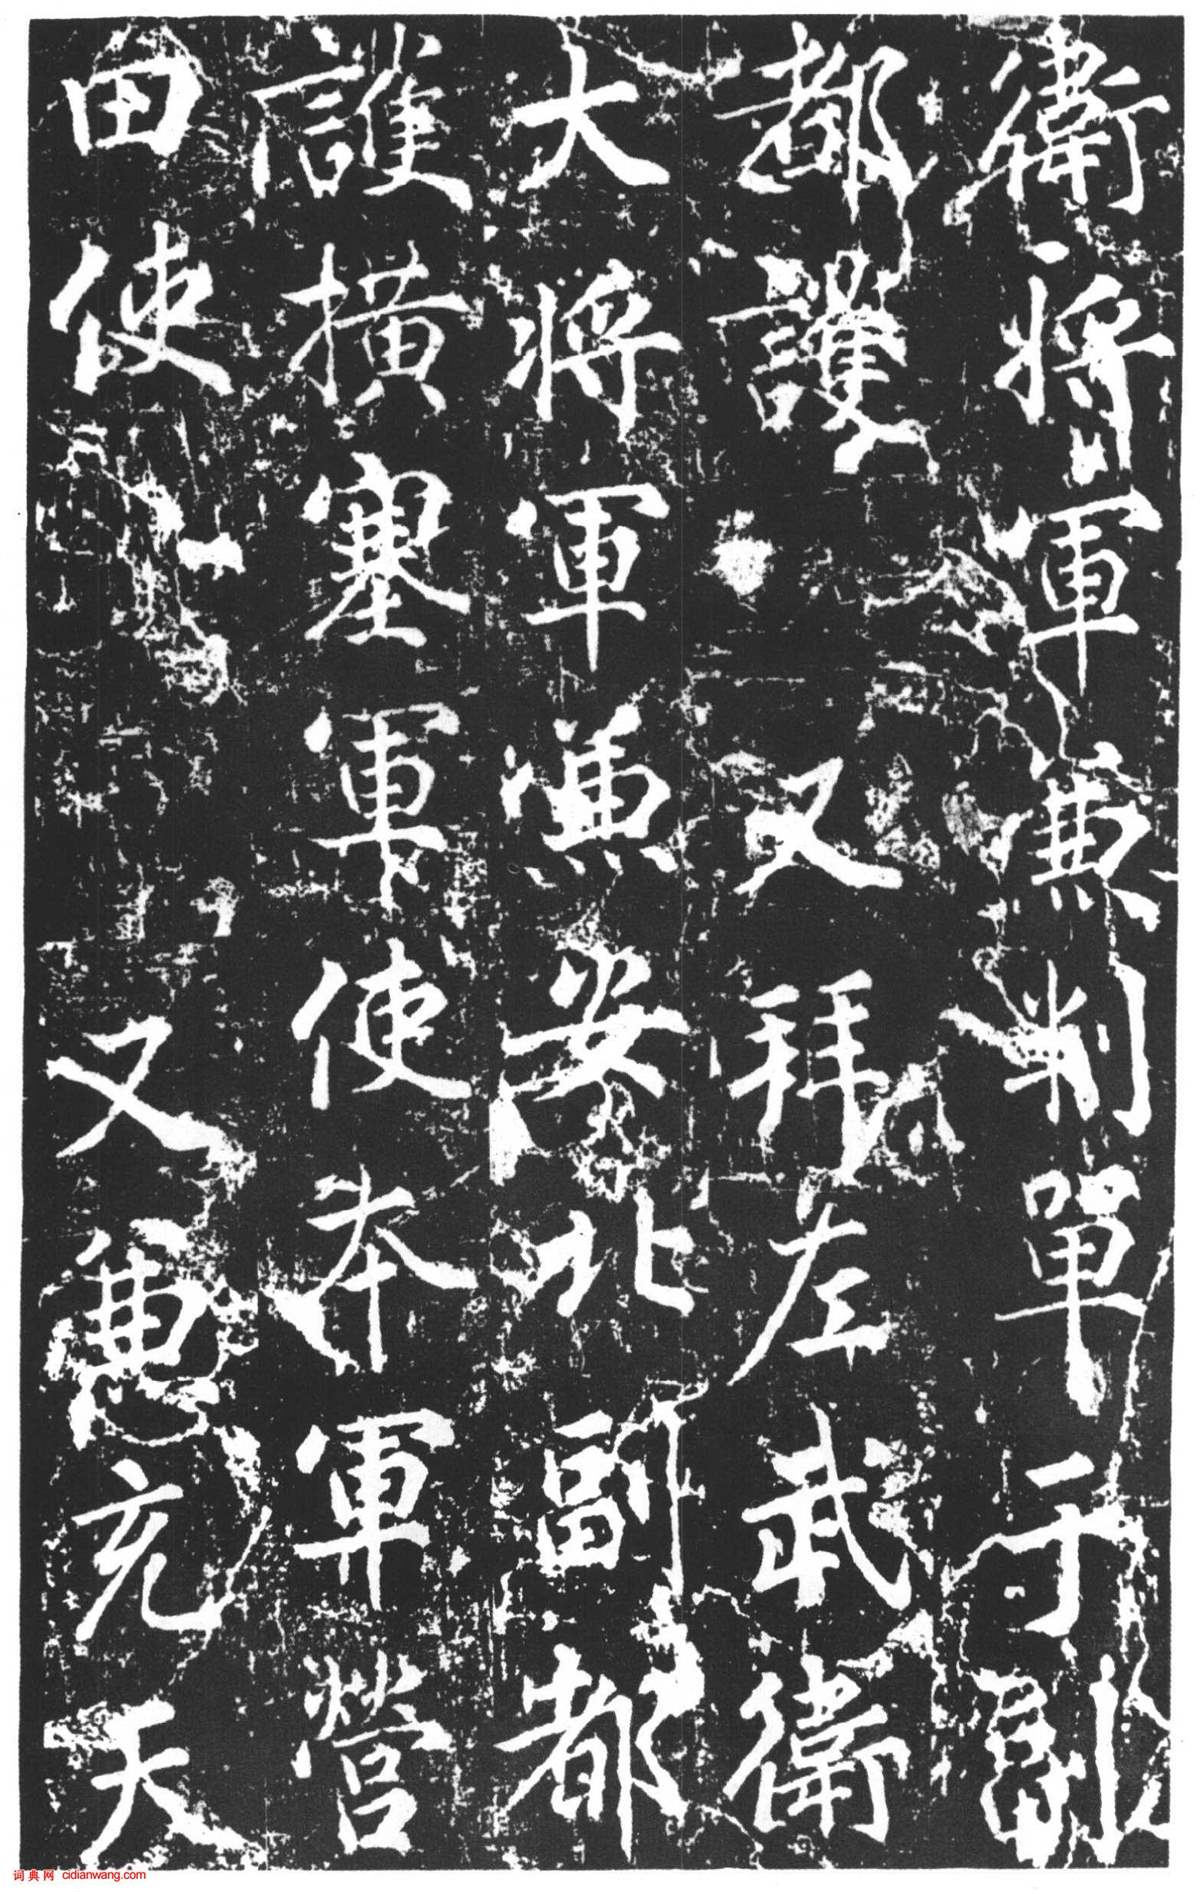 衛將軍兼判單于副
都護又拜左武衛
大將軍兼安北副都
護橫塞軍使本軍營
田使又兼充天
词典网 cidianwang.com